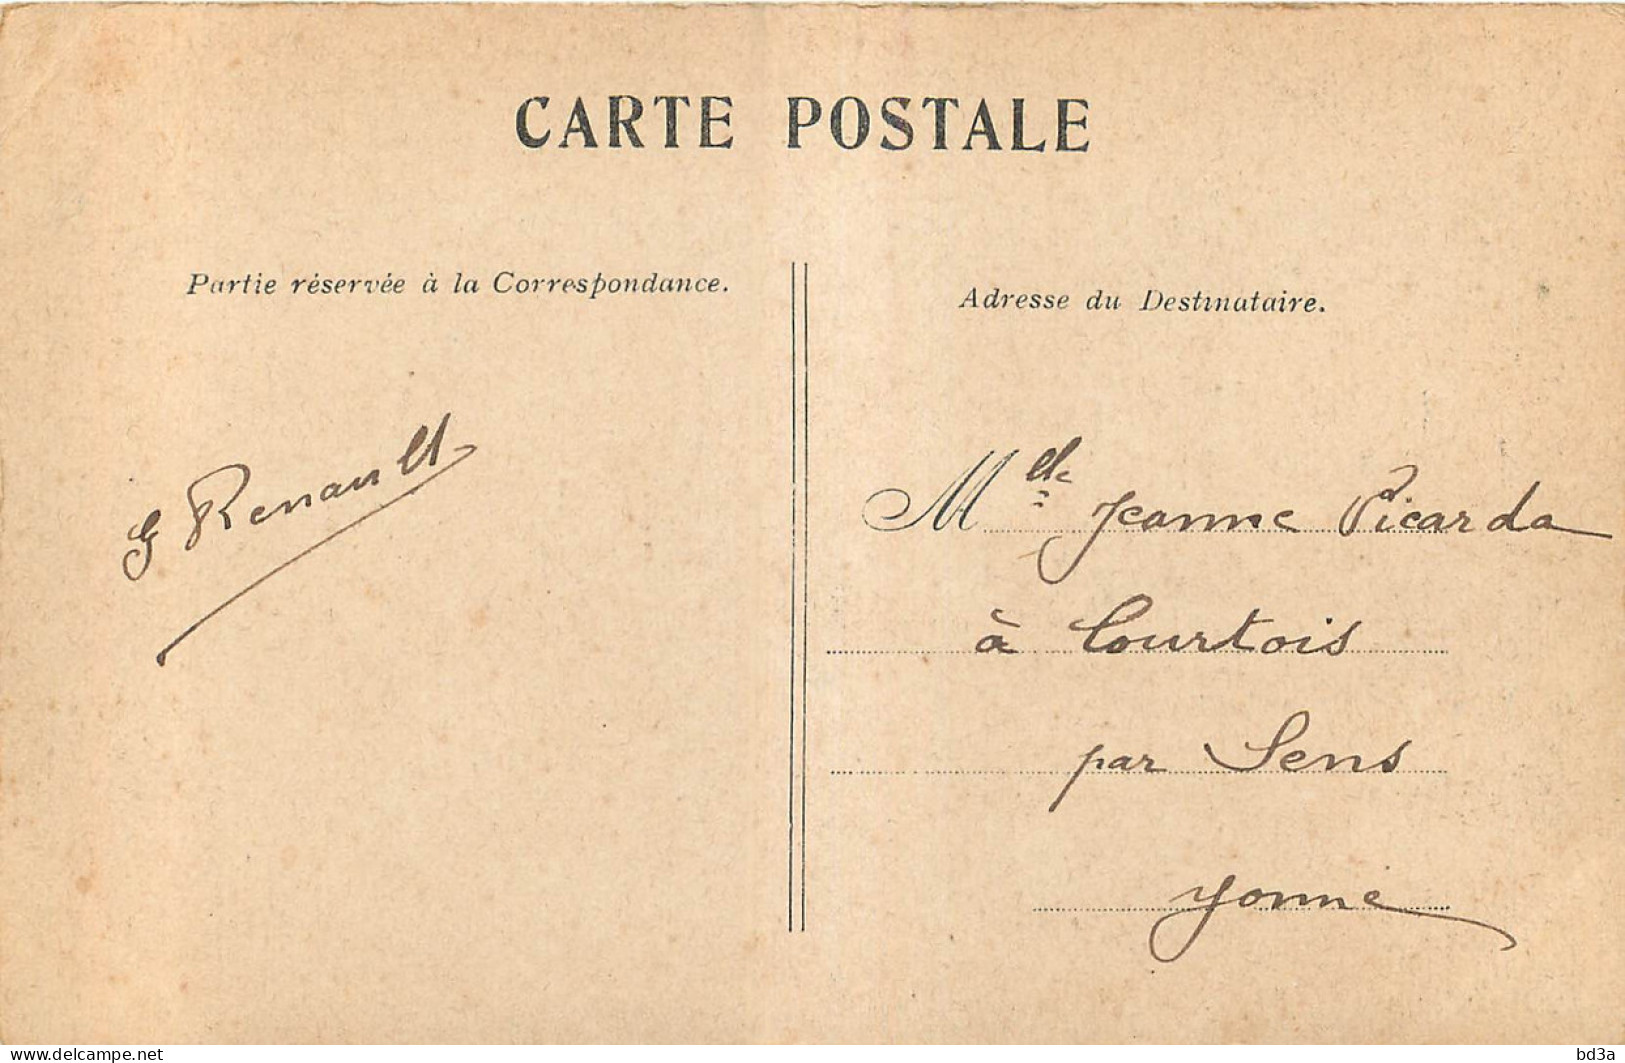 CARTE POSTALE
Partie réservée à la Correspondance.
Adresse du Destinataire.
G Renault
Mlle Jeanne Picarda
à Courtois
par Sens
Yonne
www.delcampe.net
bd3a